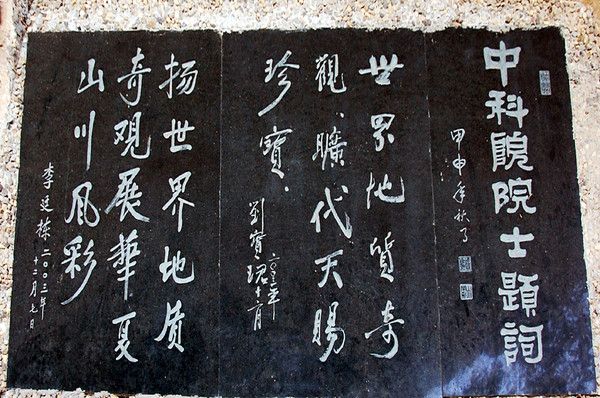 中科院院士题詞
甲申年秋月
世界地质奇
觀、曠代天賜
珍寶。
劉寶珺
二〇〇三年
十二月
扬世界地质
奇观展華夏
山川风彩
李廷栋二〇〇三年
十二月七日